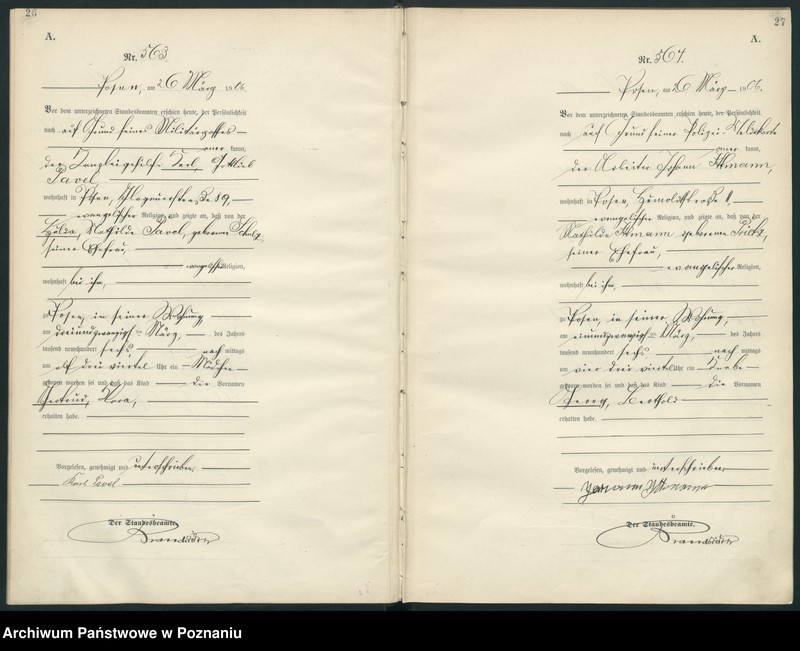 26
A.
Nr. 563.
Posen, am 26 März 1906.
Vor dem unterzeichneten Standesbeamten erschien heute, der Persönlichkeit
nach auf Grund seines Militärpasses
kannt,
der Kanzleigehilfe Karl, Gottlieb
Pavel
wohnhaft in Posen, 89,
evangelischer Religion, und zeigte an, daß von der
Mathilde Pavel, geborenen Schulz,
seiner Ehefrau,
evangelischer Religion,
wohnhaft bei ihm,
zu Posen, in seiner Wohnung,
am dreiundzwanzigsten März, des Jahres
tausend neunhundert sechs, nachmittags
um elf drei viertel Uhr ein Mädchen
geboren worden sei und daß das Kind die Vornamen
Gertrud,
erhalten habe.
Vorgelesen, genehmigt und unterschrieben.
Karl Pavel
Der Standesbeamte.
27
A.
Nr. 564.
Posen, am 26 März 1906.
Vor dem unterzeichneten Standesbeamten erschien heute, der Persönlichkeit
nach auf Grund seiner Polizei-Meldekarte
kannt,
der Arbeiter Johann Ittmann,
wohnhaft in Posen,
evangelischer Religion, und zeigte an, daß von der
Mathilde Ittmann geborenen
seiner Ehefrau,
evangelischer Religion,
wohnhaft bei ihm,
zu Posen, in seiner Wohnung,
am einundzwanzigsten März, des Jahres
tausend neunhundert sechs nachmittags
um vier drei viertel Uhr ein Knabe
geboren worden sei und daß das Kind die Vornamen
Georg, Berthold
erhalten habe.
Vorgelesen, genehmigt und unterschrieben
Johann Ittmann
Der Standesbeamte.
Archiwum Państwowe w Poznaniu